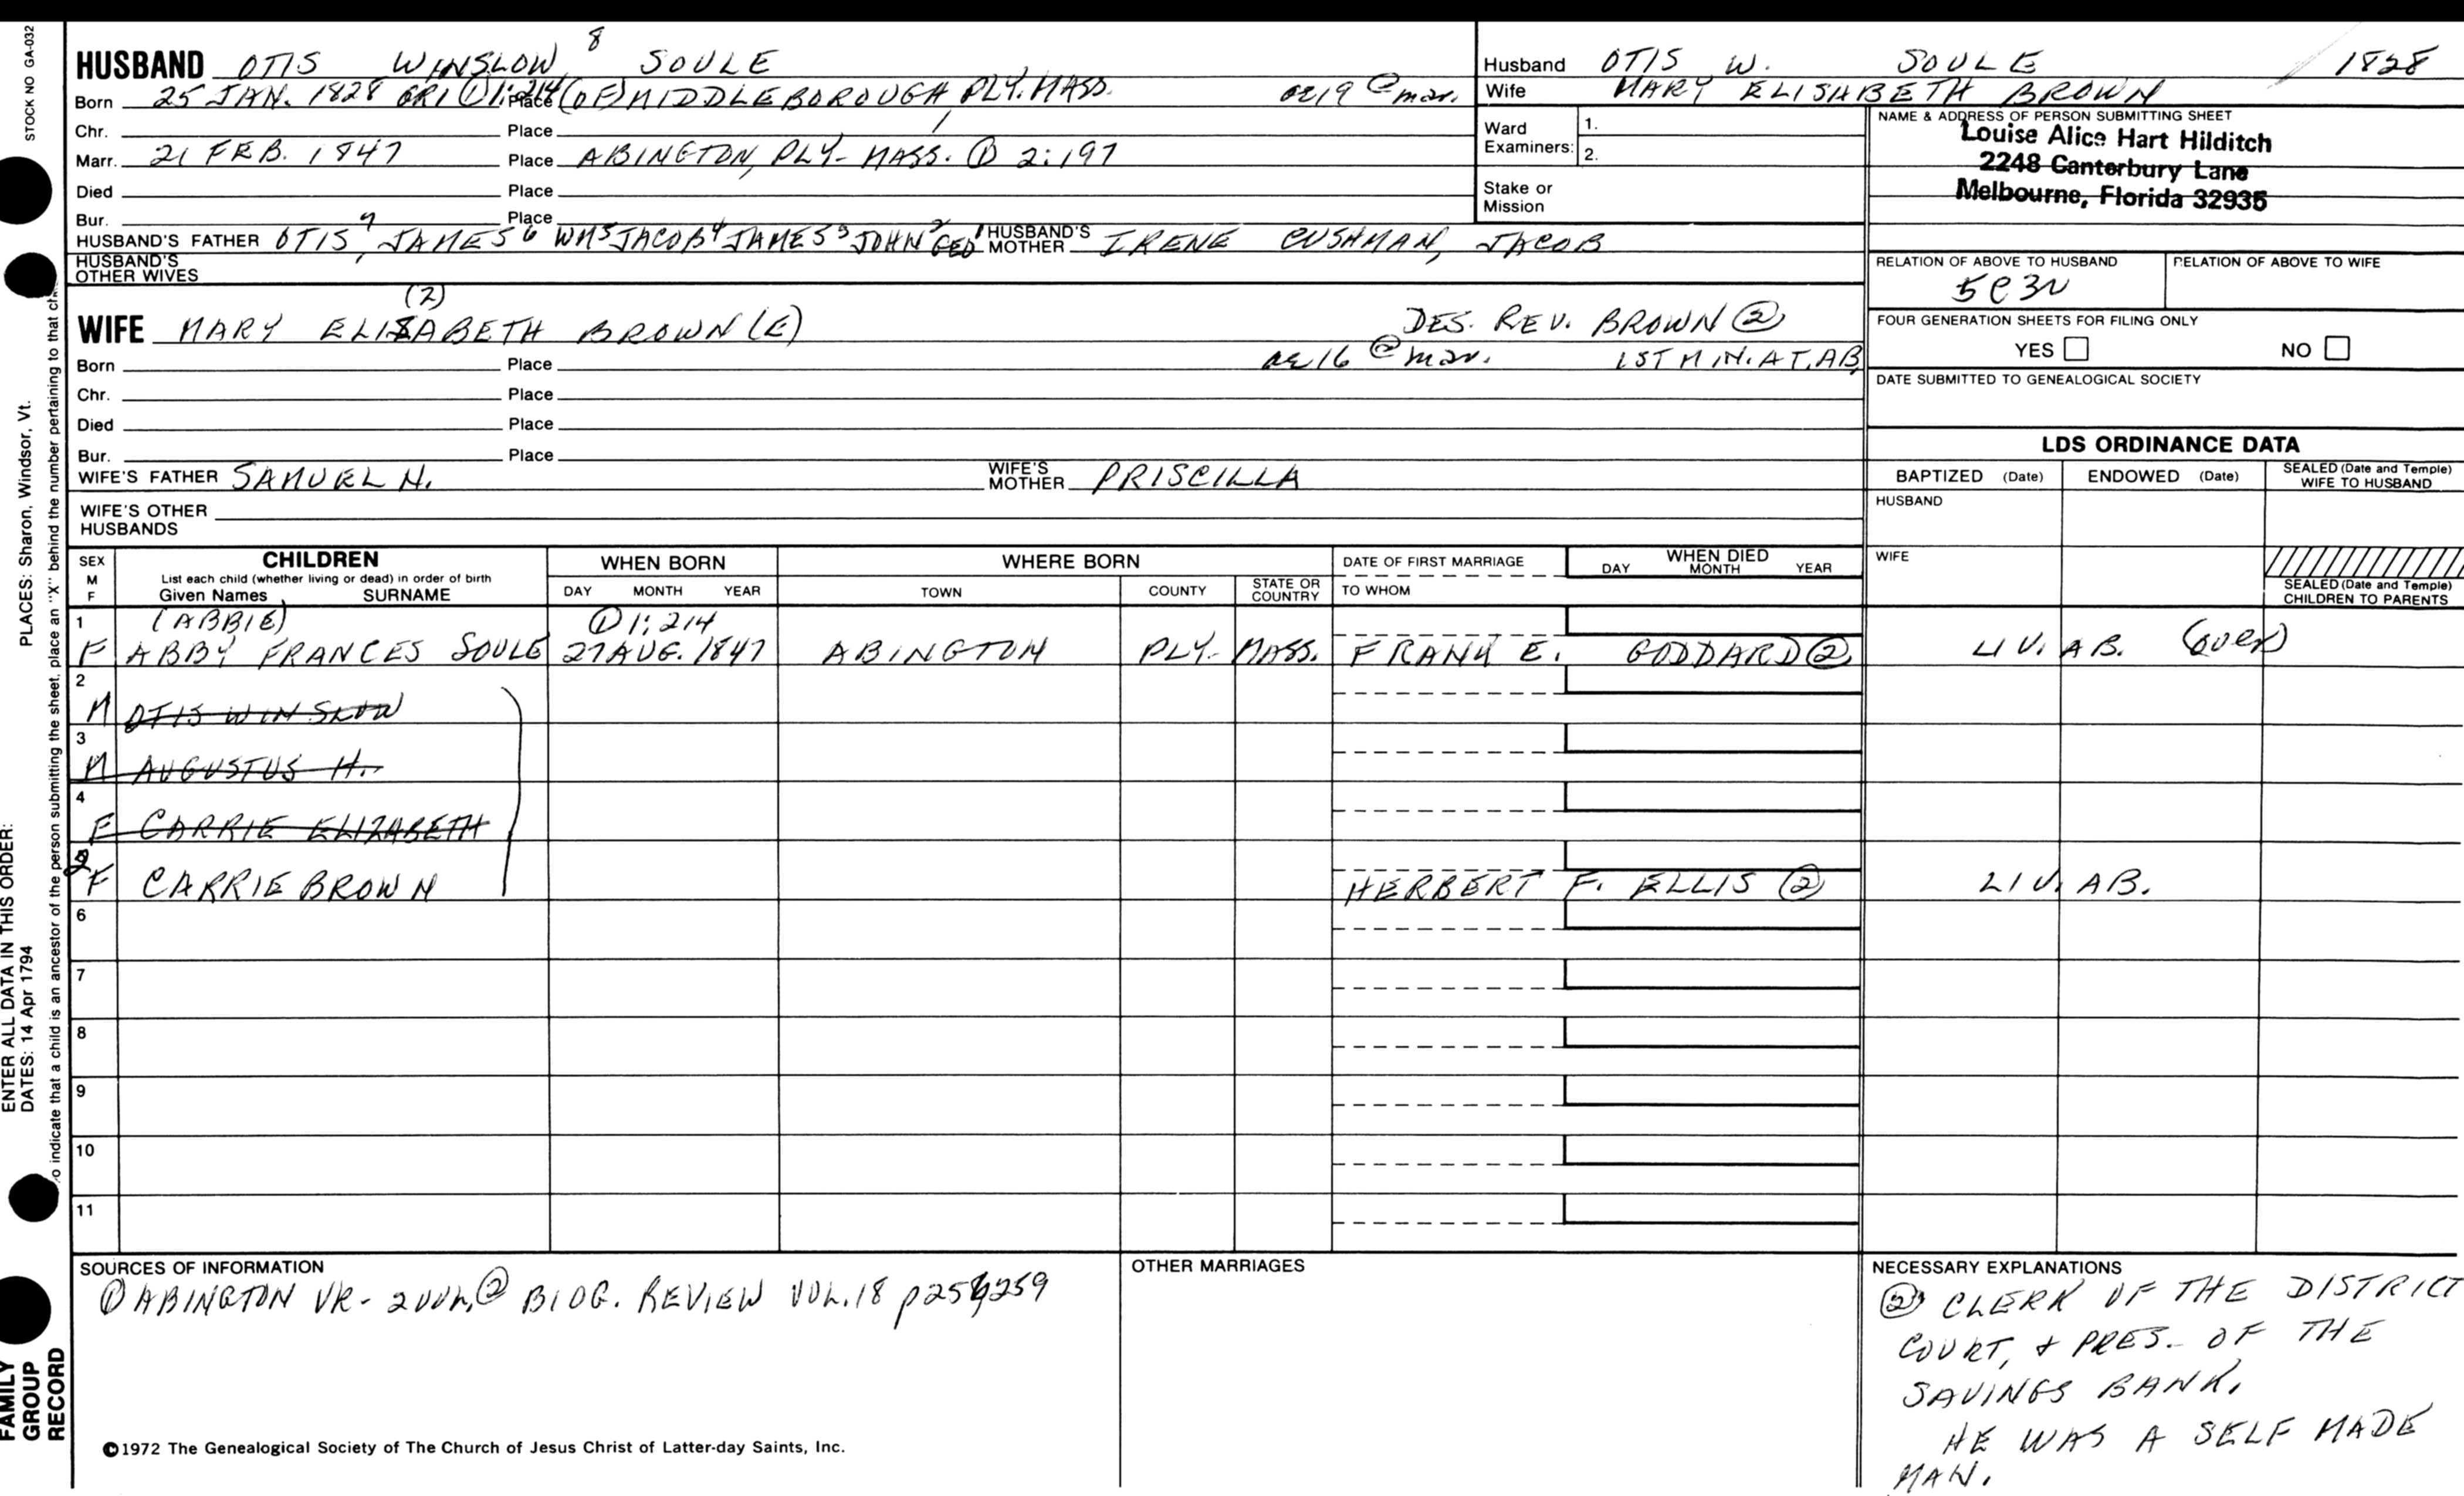 STOCK NO GA-032
HUSBAND OTIS WINSLOW 8 SOULE
Born 25 JAN. 1828 GR1 ① 1:214 Place (OF) MIDDLEBOROUGH PLY. MASS. ae 19 @ mar.
Chr. Place
Marr. 21 FEB. 1847 Place ABINGTON, PLY- MASS. ① 2:197
Died Place
Bur. Place
HUSBAND'S FATHER OTIS 7, JAMES 6 WM 5 JACOB 4 JAMES 3 JOHN 2 GEO 1 HUSBAND'S MOTHER IRENE CUSHMAN, JACOB
HUSBAND'S OTHER WIVES
Husband OTIS W. SOULE 1828
Wife MARY ELISABETH BROWN
Ward Examiners: 1.
2.
Stake or Mission
NAME & ADDRESS OF PERSON SUBMITTING SHEET
Louise Alice Hart Hilditch
2248 Canterbury Lane
Melbourne, Florida 32935
RELATION OF ABOVE TO HUSBAND RELATION OF ABOVE TO WIFE
5C3R
FOUR GENERATION SHEETS FOR FILING ONLY
YES NO
DATE SUBMITTED TO GENEALOGICAL SOCIETY
(2)
WIFE MARY ELIZABETH BROWN (E) DES. REV. BROWN ②
Born Place ae 16 @ mar. 1ST MIN. AT. AB
Chr. Place
Died Place
Bur. Place
WIFE'S FATHER SAMUEL N. WIFE'S MOTHER PRISCILLA
WIFE'S OTHER HUSBANDS
LDS ORDINANCE DATA
BAPTIZED (Date) ENDOWED (Date) SEALED (Date and Temple) WIFE TO HUSBAND
HUSBAND
WIFE
SEALED (Date and Temple) CHILDREN TO PARENTS
SEX M F
CHILDREN
List each child (whether living or dead) in order of birth
Given Names SURNAME
WHEN BORN
DAY MONTH YEAR
WHERE BORN
TOWN COUNTY STATE OR COUNTRY
DATE OF FIRST MARRIAGE
TO WHOM
WHEN DIED
DAY MONTH YEAR
1 (ABBIE) ① 1:214
F ABBY FRANCES SOULE 27 AUG. 1847 ABINGTON PLY- MASS. FRANK E. GODDARD ② LIV. AB. (over)
2
M OTIS WINSLOW
3
M AUGUSTUS H.
4
F CARRIE ELIZABETH
2
F CARRIE BROWN HERBERT F. ELLIS ② LIV. AB.
6
7
8
9
10
11
SOURCES OF INFORMATION
① ABINGTON VR- 2 vol. ② BIOG. REVIEW VOL. 18 p 259
OTHER MARRIAGES
NECESSARY EXPLANATIONS
② CLERK OF THE DISTRICT
COURT, & PRES. OF THE
SAVINGS BANK.
HE WAS A SELF MADE
MAN.
©1972 The Genealogical Society of The Church of Jesus Christ of Latter-day Saints, Inc.
FAMILY GROUP RECORD
ENTER ALL DATA IN THIS ORDER:
DATES: 14 Apr 1794
PLACES: Sharon, Windsor, Vt.
o indicate that a child is an ancestor of the person submitting the sheet, place an "X" behind the number pertaining to that ch